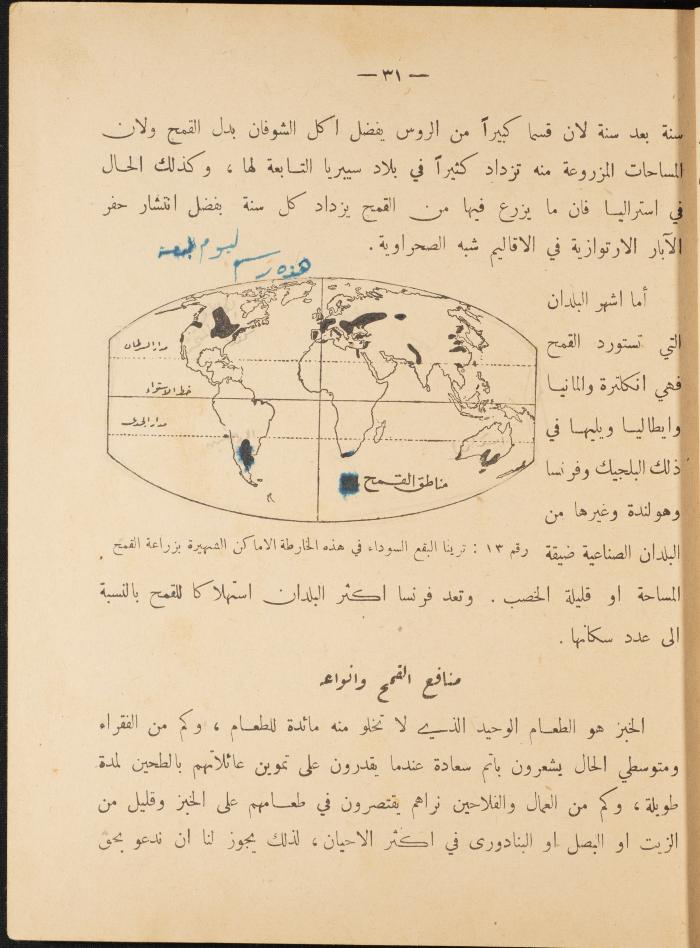 — ٣١ —
سنة بعد سنة لان قسما كبيراً من الروس يفضل اكل الشوفان بدل القمح ولان
المساحات المزروعة منه تزداد كثيراً في بلاد سيبريا التابعة لها ، وكذلك الحال
في استراليا فان ما يزرع فيها من القمح يزداد كل سنة بفضل انتشار حفر
الآبار الارتوازية في الاقاليم شبه الصحراوية .
هذه رسم ليوم الجمعة
أما اشهر البلدان
التي تستورد القمح
فهي انكلترة والمانيا
وايطاليا ويليها في
ذلك البلجيك وفرنسا
وهولندة وغيرها من
البلدان الصناعية ضيقة
مدار السرطان
خط الاستواء
مدار الجدي
مناطق القمح
رقم ١٣ : ترينا البقع السوداء في هذه الخارطة الاماكن الشهيرة بزراعة القمح
المساحة او قليلة الخصب . وتعد فرنسا اكثر البلدان استهلاكا للقمح بالنسبة
الى عدد سكانها .
منافع القمح وانواعه
الخبز هو الطعام الوحيد الذي لا تخلو منه مائدة للطعام ، وكم من الفقراء
ومتوسطي الحال يشعرون باتم سعادة عندما يقدرون على تموين عائلاتهم بالطحين لمدة
طويلة ، وكم من العمال والفلاحين نراهم يقتصرون في طعامهم على الخبز وقليل من
الزيت او البصل او البنادورى في اكثر الاحيان ، لذلك يجوز لنا ان ندعو بحق